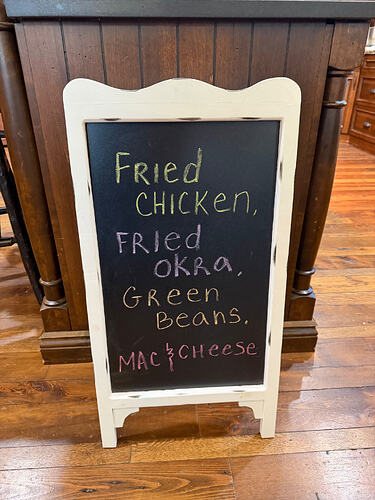 Fried
CHICKen,
FRIED
OKRa,
Green
Beans,
MAC & CHeese